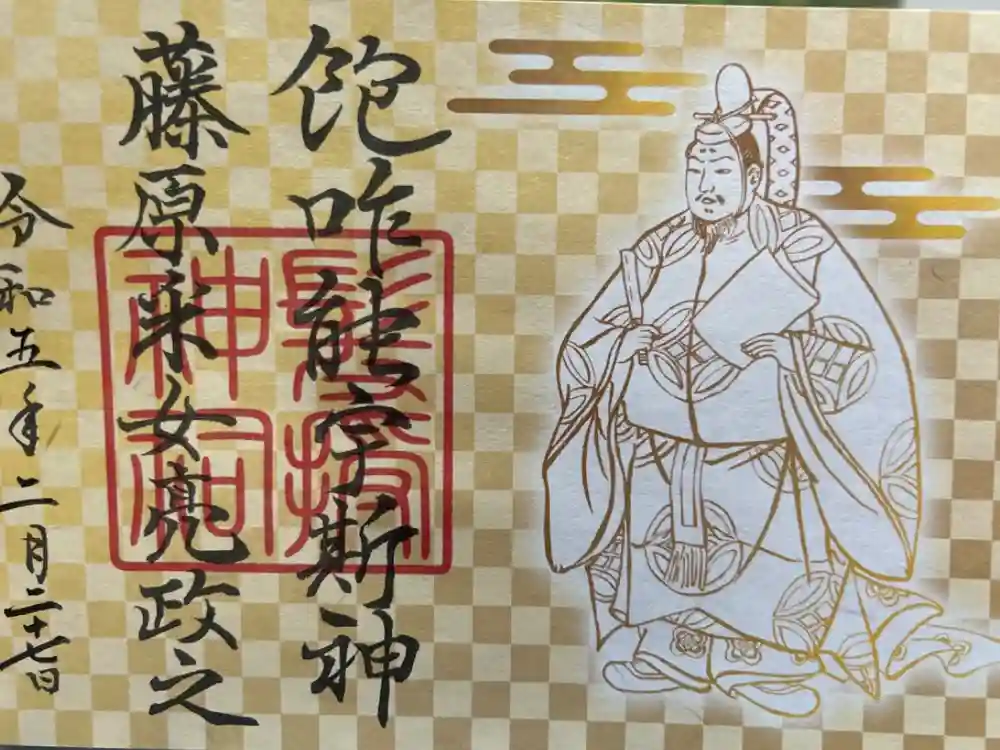 飽咋能宇斯神
藤原采女亮政之
令和五年二月二十七日
髪授
神祠